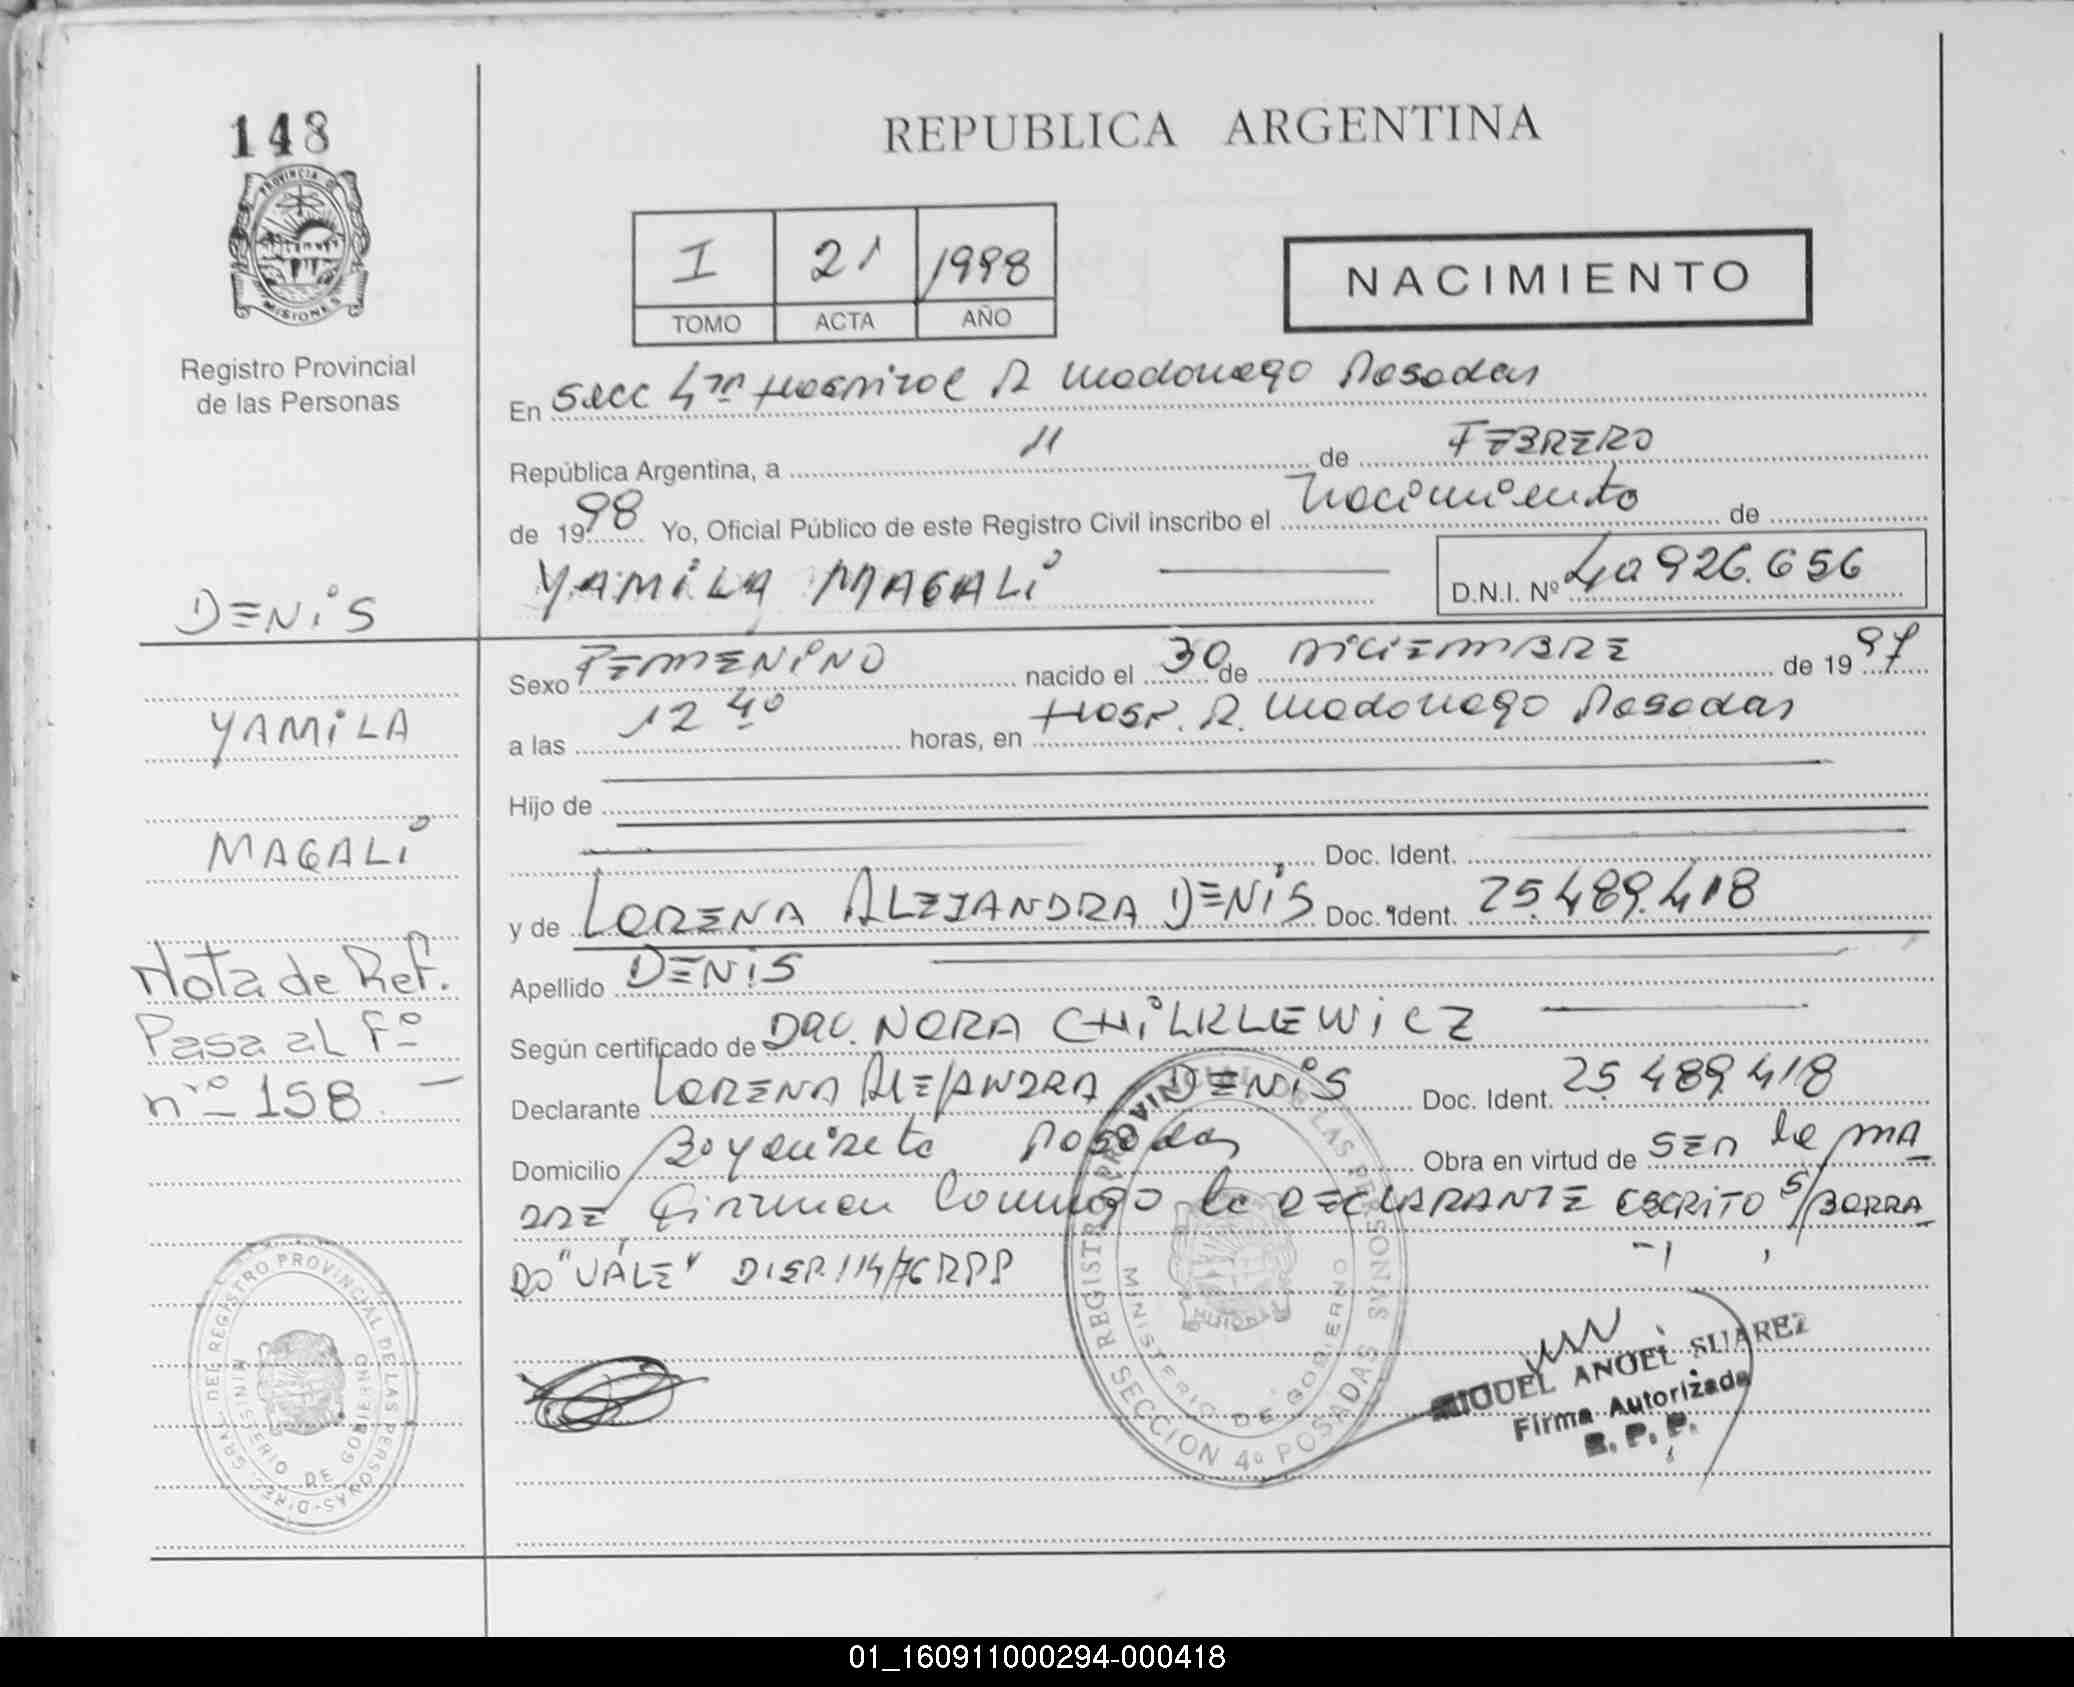 148
PROVINCIA D
MISIONES
Registro Provincial
de las Personas
DENIS
YAMILA
MAGALI
Nota de Ref.
Pasa al Fº
nº 158 —
DIREC. GRAL. DEL REGISTRO PROVINCIAL DE LAS PERSONAS
MINISTERIO DE GOBIERNO
REPUBLICA ARGENTINA
I 21 1998
TOMO ACTA AÑO
NACIMIENTO
En Secc 4ta Hospital R Madariaga Posadas
República Argentina, a 11 de FEBRERO
de 1998 Yo, Oficial Público de este Registro Civil inscribo el Nacimiento de
YAMILA MAGALI D.N.I. Nº 40926.656
Sexo FEMENINO nacido el 30 de DICIEMBRE de 1997
a las 12 40 horas, en Hosp. R. Madariaga Posadas
Hijo de
Doc. Ident.
y de LORENA ALEJANDRA DENIS Doc. Ident. 25.489.418
Apellido DENIS
Según certificado de NORA
Declarante LORENA ALEJANDRA DENIS Doc. Ident. 25.489.418
Domicilio Posadas Obra en virtud de SER la MA
DRE Conmigo la DECLARANTE ESCRITO S/BORRA
DO "VALE" DISP. 114/76 RPP
REGISTRO PROVINCIAL DE LAS PERSONAS
MINISTERIO DE GOBIERNO
MISIONES
SECCION 4ª POSADAS
MIGUEL ANGEL SUAREZ
Firma Autorizada
R. P. P.
01_160911000294-000418